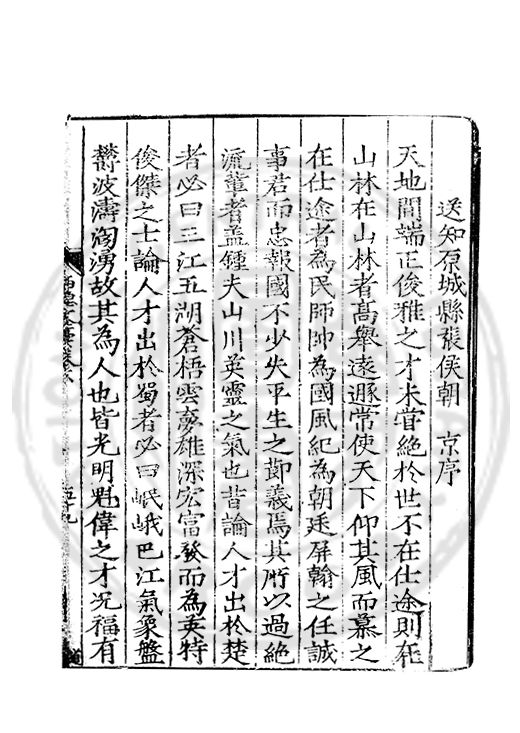 送知京城縣張侯朝　京序
天地間端正俊雅之才未嘗絶於世不在仕途則在
山林在山林者髙舉遠遯常使天下仰其風而慕之
在仕途者為民師帥為國風紀為朝廷屏翰之任誠
事君而忠報國不少失平生之節義焉其所以過絶
流輩者盖鍾夫山川英靈之氣也昔論人才出於楚
者必曰三江五湖蒼梧雲夢雄深宏富發而為英特
俊傑之士論人才出於蜀者必曰岷峨巴江氣象盤
欝波濤洶湧故其為人也皆光明魁偉之才况福有
五十九